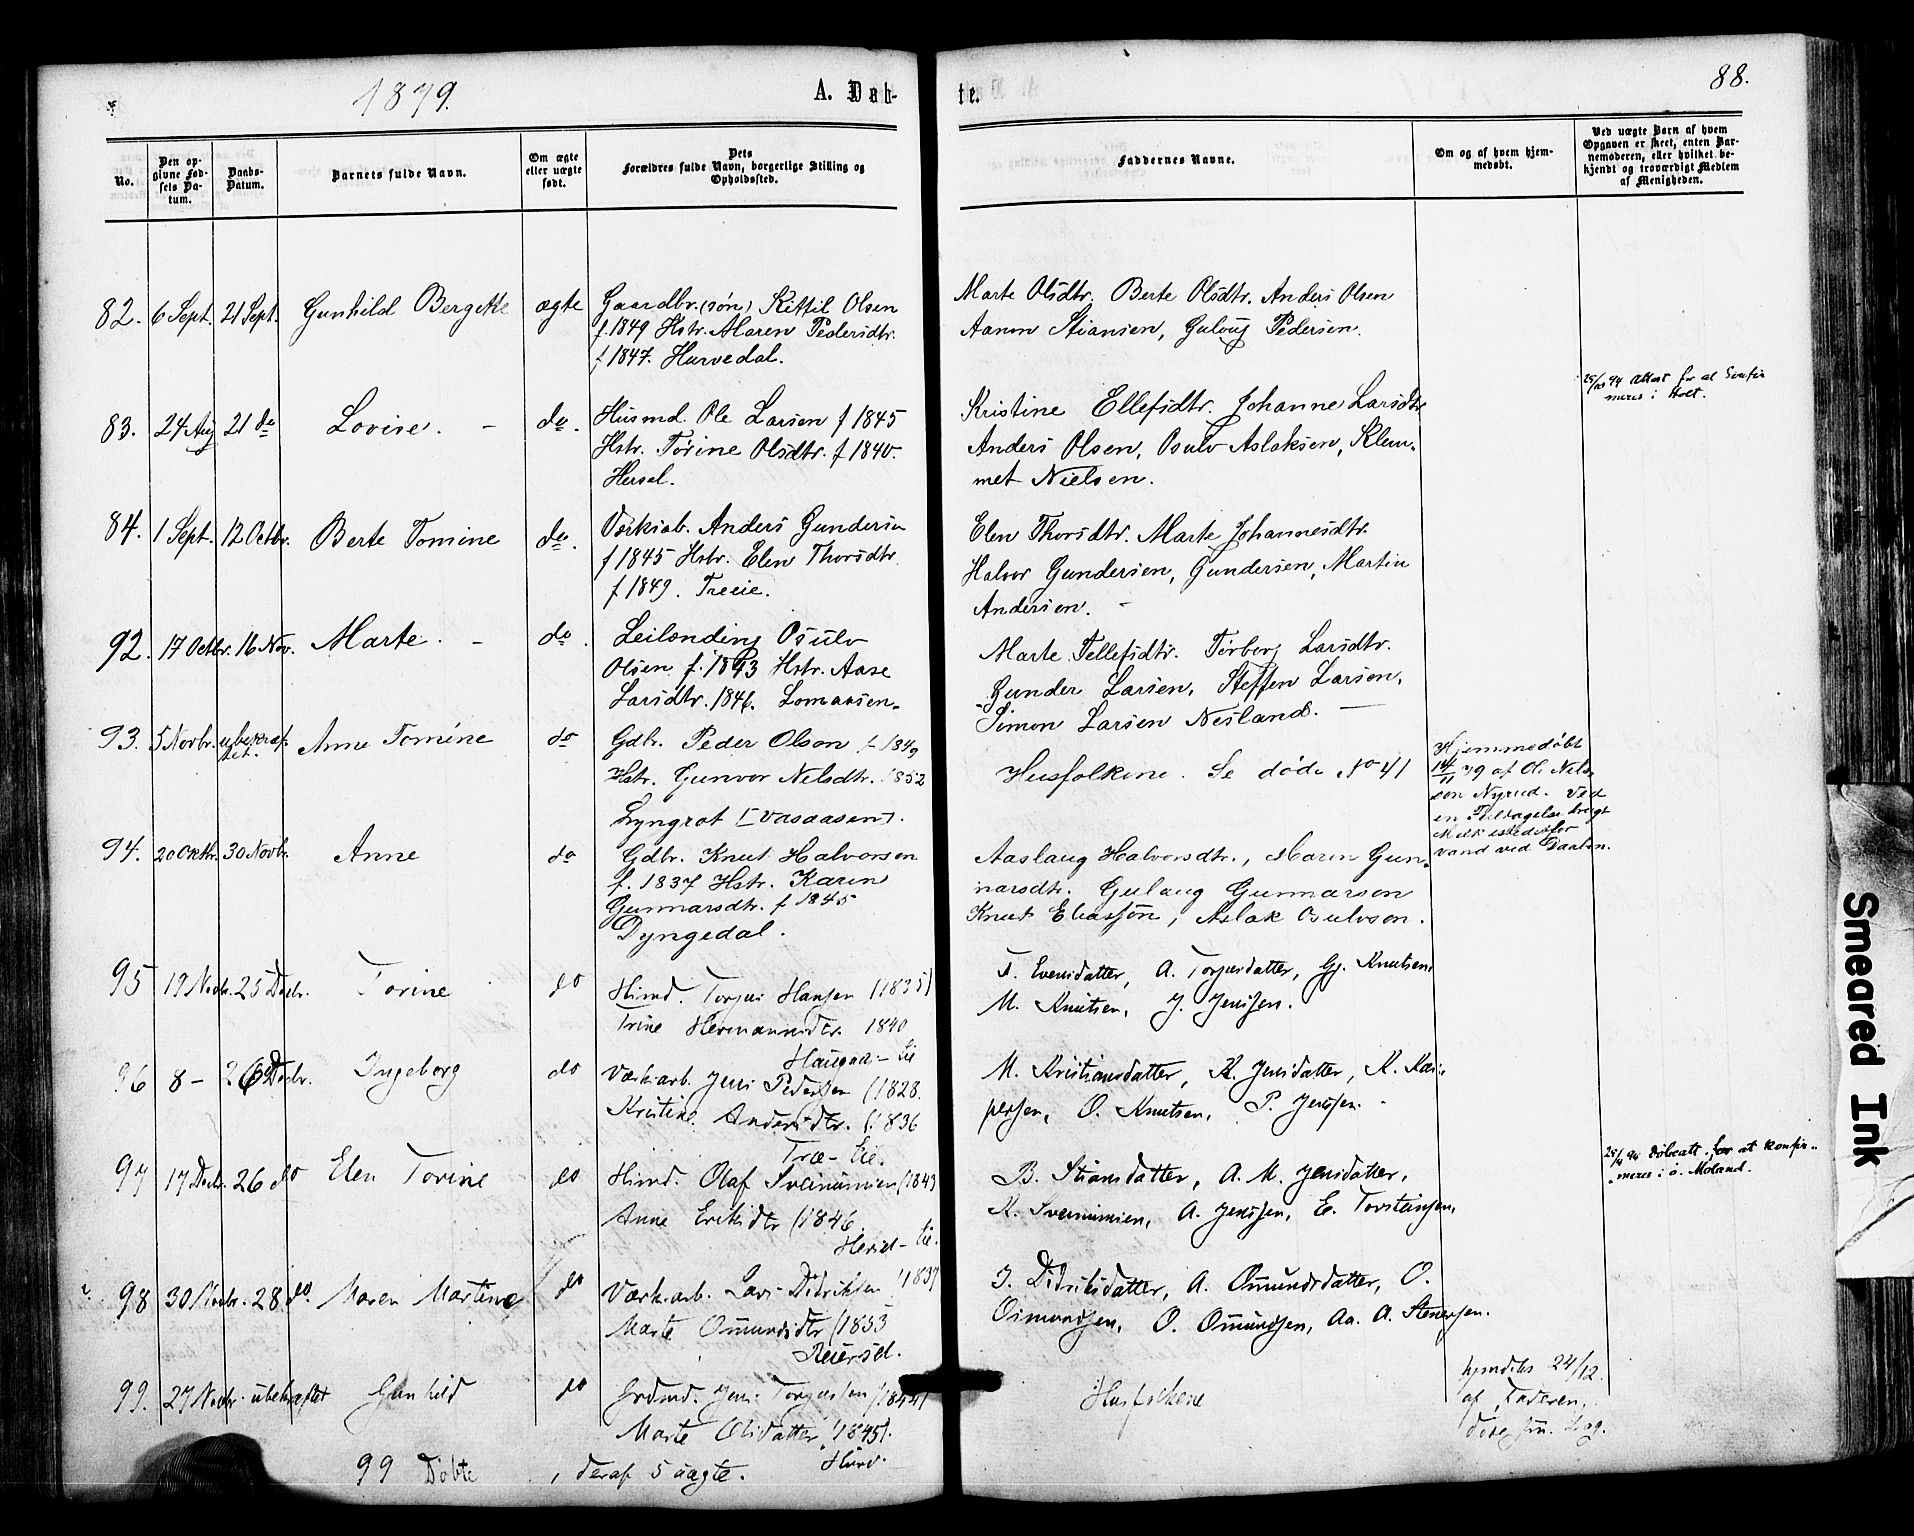 1879.
A. Døb-
te.
88.
No.
Den op-
givne Fød-
sels Da-
tum.
Daabs-
Datum.
Barnets fulde Navn.
Om ægte
eller uægte
født.
Dets
Forældres fulde Navn, borgerlige Stilling og
Opholdssted.
Faddernes Navne.
Om og af hvem hjem-
medøbt.
Ved uægte Børn af hvem
Opgaven er skeet, enten Bar-
nemoderen, eller hvilket be-
kjendt og troværdigt Medlem
af Menigheden.
82. 6 Sept. 21 Sept. Gunhild Bergitte ægte Gaardbr. (søn) Kittil Olsen
f. 1849 Hstr. Maren Pedersdtr.
f. 1847. Hurvedal.
Marte Olsdtr. Berte Olsdtr. Anders Olsen
Aanon Stiansen, Guloug Pedersen.
83. 24 Aug 21 do Lovise. - do. Husmd. Ole Larsen f 1845
Hstr. Torine Olsdtr. f 1840.
Hersel.
Kristine Ellefsdtr. Johanne Larsdtr.
Anders Olsen, Osulv Aslaksen, Klem-
met Nielsen.
94 Attest for at konfir
meres i Holt.
84. 1 Sept. 12 Octbr. Berte Tomine do. Verksab. Anders Gundersen
f 1845 Hstr. Elen Thorsdtr.
f 1849. Treeie.
Elen Thorsdtr. Marte Johannesdtr.
Halvor Gundersen, Gundersen, Martin
Andersen. -
92. 17 Octbr. 16 Nov. Marte. - do. Leilænding Osulv
Olsen f. 1843 Hstr. Aase
Larsdtr. 1846. Lomaasen.
Marte Tellefsdtr. Torborg Larsdtr.
Gunder Larsen, Steffen Larsen,
Simon Larsen Nesland. -
93. 5 Novbr. ubekræf-
tet. Anne Tomine do Gdbr. Peder Olson f. 1849
Hstr. Gunvor Nelsdtr. 1852
Lyngrot [Vasaasen].
Husfolkene. Se døde No 41
Hjemmedøbt
14/11 79 af O. Nils-
son Nyrud. Ved
en Feiltagelse brugt
Melk istedetfor
vand ved Daaben.
94. 20 Oktbr. 30 Novbr. Anne do Gdbr. Knut Halvorson
f. 1837 Hstr. Karen
Gunnarsdtr. f 1845
Dyngedal.
Aaslaug Halvorsdtr., Maren Gun-
narsdtr. Gulaug Gunnarson
Knut Eliassøn, Aslak Osulvson.
95 19 Novbr. 25 Decbr. Torine do Hsmd. Torjus Hansen (1835)
Trine Hermannsdtr. 1840
T. Evensdatter, A. Torjusdatter, Gj. Knutsen,
M. Knutsen, J. Jenssen.
96 8 - 26 Decbr. Ingeborg do Værk.arb. Jens Pederssen (1828.
Kristine Andersdtr. (1836
Træ-Eie.
M. Kristiansdatter, K. Jensdatter, K. Kas-
persen, O. Knutsen, P. Jenssen. -
97 17 Decbr. 26 do Elen Torine do Hsmd. Olaf Sveinumsen (1843
Anne Eriksdtr (1846.
B. Stiansdatter, A. M. Jensdatter,
K. Sveinumsen, A. Jenssen, E. Torsteinsen,
94 Døbeatt. for at konfir-
meres i ø. Moland.
98 30 Novbr. 28 do. Maren Martine do Værk.arb. Lars Didriksen (1837
Marte Omundsdtr (1853
Reiersel.
I. Didriksdatter, A. Omundsdatter, O.
Osmundsen, O. Omundsen, Aa. A. Stenersen.
99. 27 Novbr. ubekræftet Gunhild do Jens Torgussen (1844)
Marte Olsdatter (1845).
Husfolkene
hjmdøbt 24/12.
af Faderen,
99 Døbte, deraf 5 uægte.
Smeared Ink